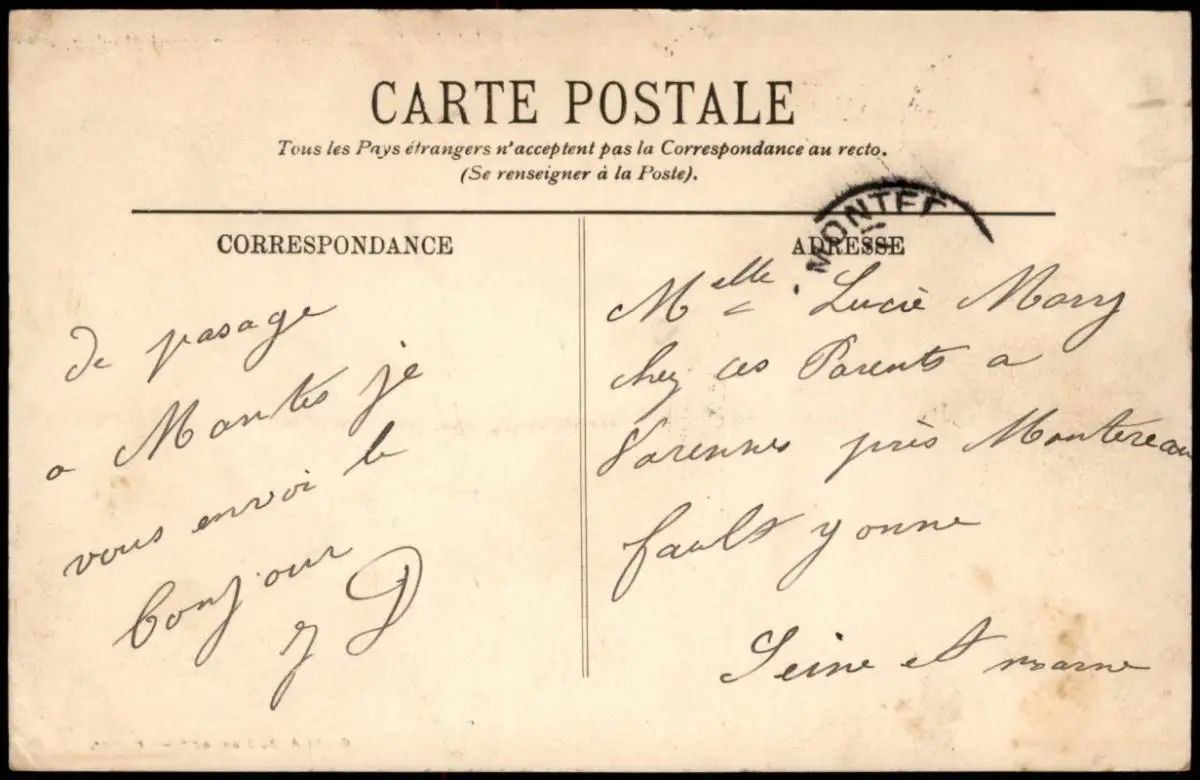 CARTE POSTALE
Tous les Pays étrangers n'acceptent pas la Correspondance au recto.
(Se renseigner à la Poste).
CORRESPONDANCE
de pasage
a Mantes je
vous envoi le
bonjour
ADRESSE
MONTE
Melle Lucie Mary
chez ces Parents a
Varennes près Montereau
fault yonne
Seine et marne